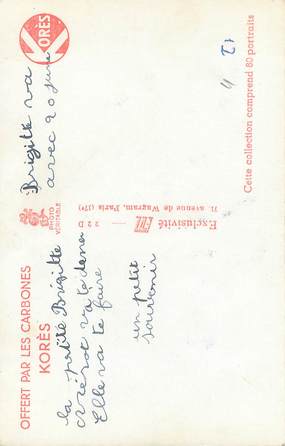 OFFERT PAR LES CARBONES
KORÈS
KORÈS
PHOTO
VÉRITABLE
Brigitte va
avec 20 jeune
la petite Brigitte
va te donner
Elle va te faire
un petit
sourbonir
Exclusivité
22D
71, avenue de Wagram, Paris (17e)
Cette collection comprend 80 portraits